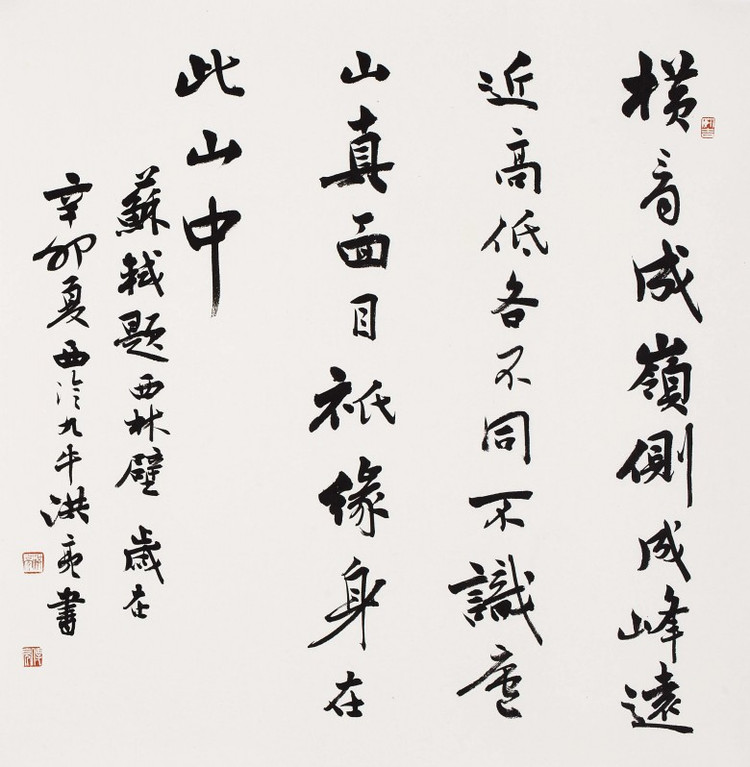 橫看成嶺側成峰遠
近高低各不同不識廬
山真面目祇緣身在
此山中
蘇軾題西林壁 歲在
辛卯夏西泠九牛洪亮書